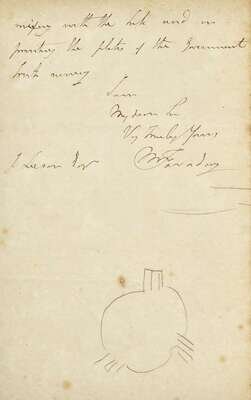 mixing with the ink and in
printing the plates of the Government
bank
I am
My dear Sir
Vy Truly Yours
M Faraday